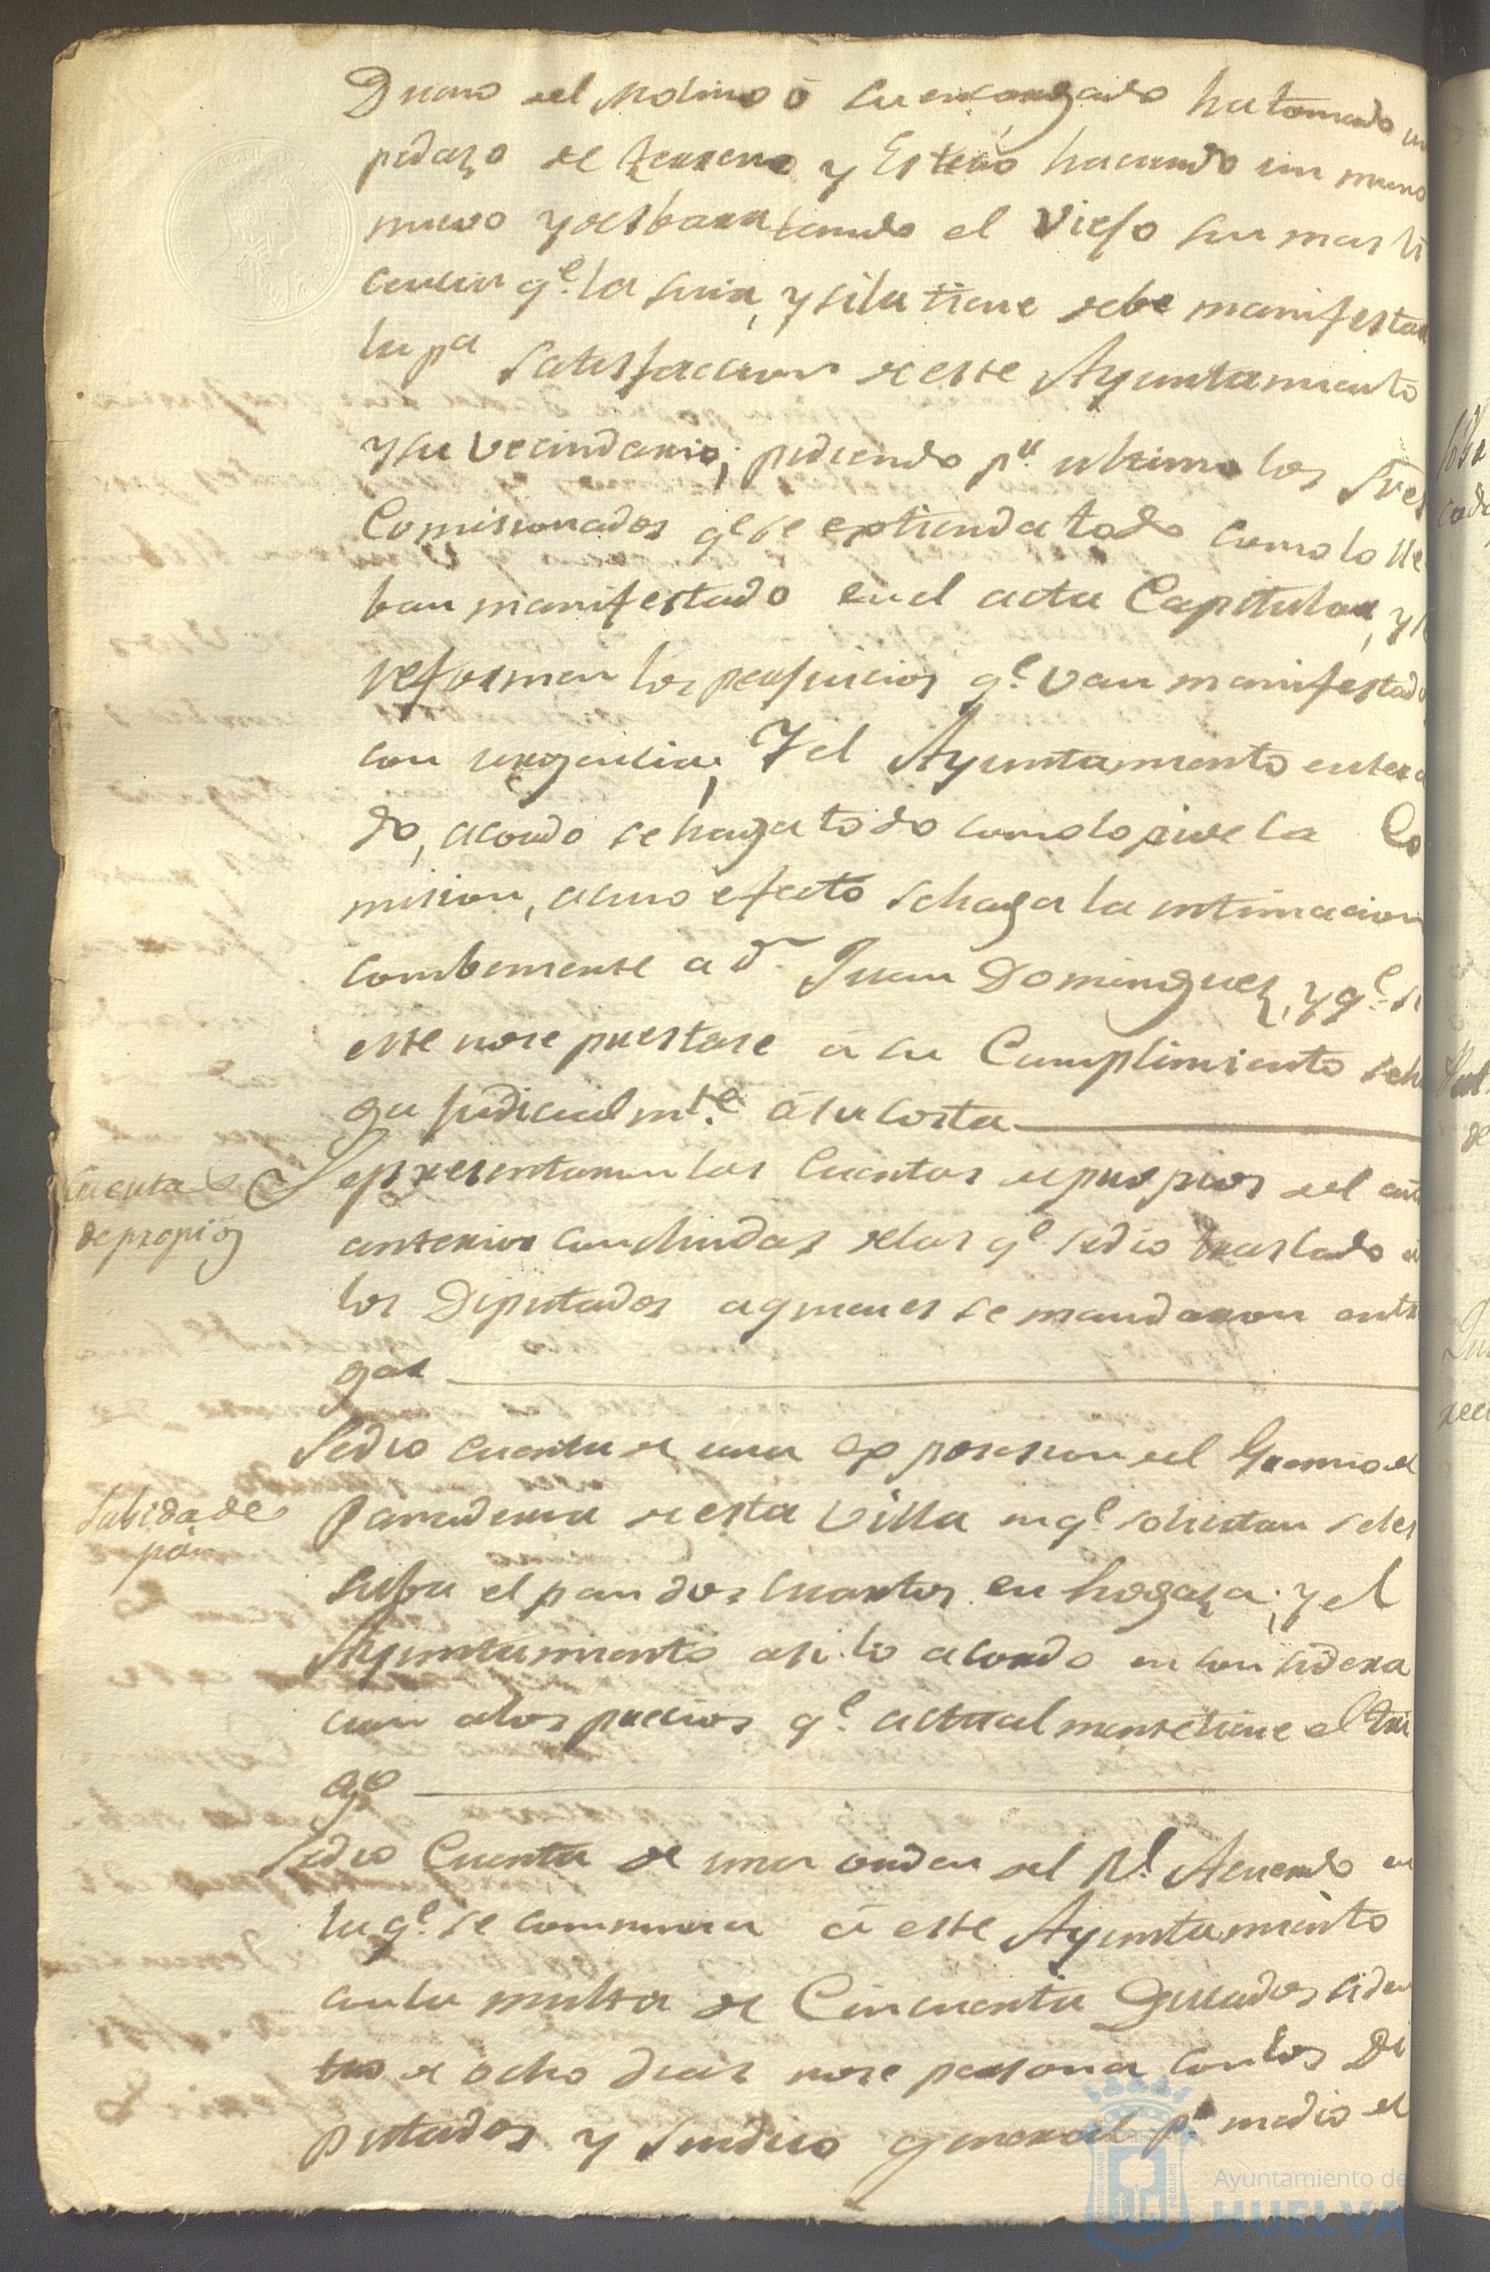 Dueno del Molino ó su encargado ha tomado un
pedazo de terreno y Estero haciendo un muro
nuevo y desbaratando el viejo sin mas li
cencia qe. la suia, y si la tiene debe manifestar
la pa satisfaccion de este Ayuntamiento
y su vecindario; pidiendo pr. ultimo los Sres
Comisionados qe se extienda todo como lo lle
ban manifestado en el acta Capitular, y se
reformen los perjuicios qe. van manifestados
con urgencia; Y el Ayuntamiento entera
do, acordo se haga todo como lo pide la Co
mision, a cuio efecto se haga la intimacion
combeniente a Dn. Juan Dominguez, y qe. si
este no se prestase á su Cumplimiento se ha
ga judicialmte. á su costa
Cuentas
de propios
Se presentaron las Cuentas de propios del año
anterior concluidas de las qe. se dio traslado á
los Diputados a quienes se mandaron entre
gar
Subida de
pan
Se dio cuenta de una exposicion del Gremio de
Panaderia de esta Villa en qe. solicitan se les
suba el pan dos cuartos en hogaza; y el
Ayuntamiento asi lo acordo en considera
cion a los precios qe. actualmente tiene el tri
go
Se dio Cuenta de una orden del Rl. Acuerdo en
la qe. se conmina á este Ayuntamiento
con la multa de Cincuenta Ducados si den
tro de ocho dias no se persona con los Di
putados y Sindico general pr. medio de
Ayuntamiento de
HUELVA